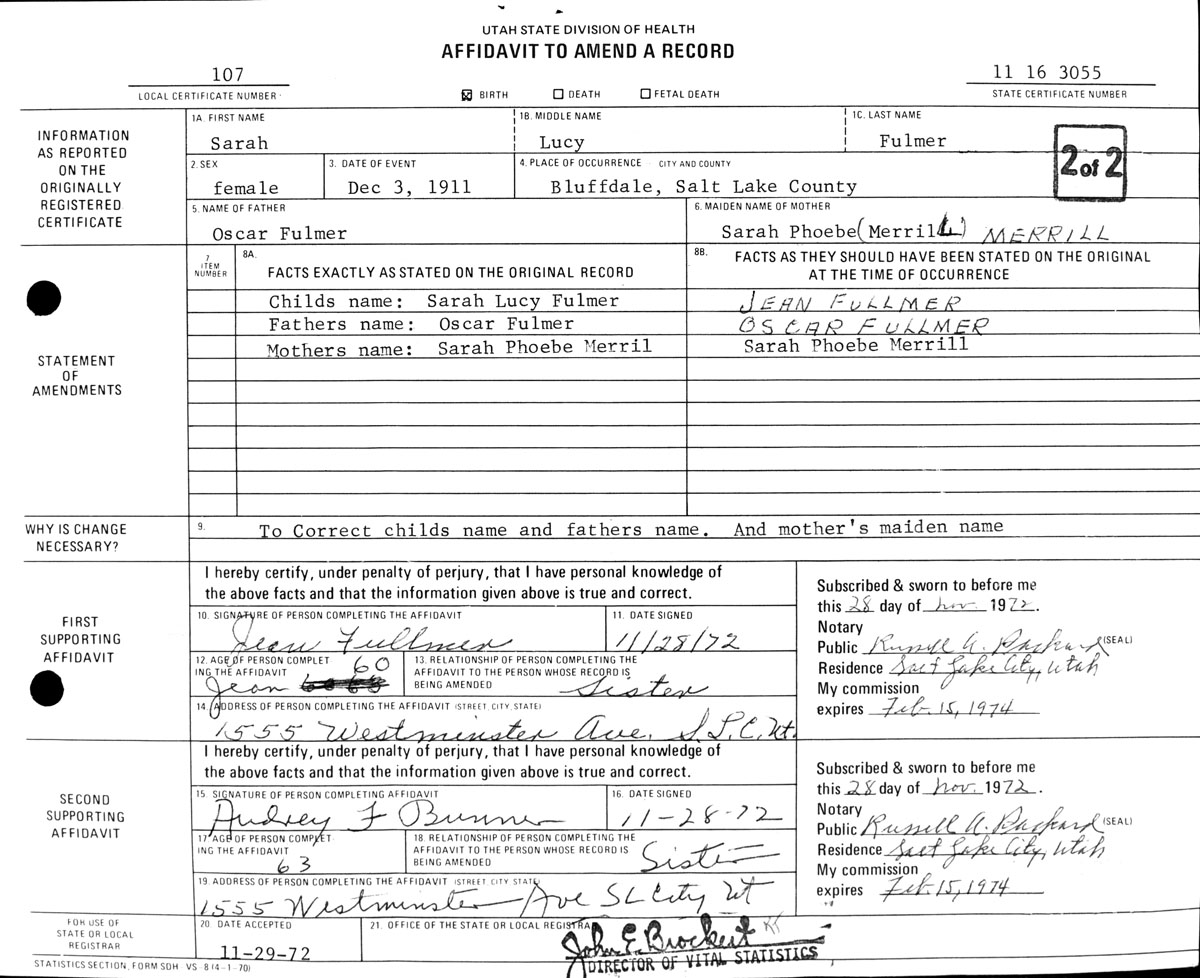 UTAH STATE DIVISION OF HEALTH
AFFIDAVIT TO AMEND A RECORD
107
LOCAL CERTIFICATE NUMBER
☒ BIRTH ☐ DEATH ☐ FETAL DEATH
11 16 3055
STATE CERTIFICATE NUMBER
INFORMATION
AS REPORTED
ON THE
ORIGINALLY
REGISTERED
CERTIFICATE
1A. FIRST NAME 1B. MIDDLE NAME 1C. LAST NAME
Sarah Lucy Fulmer
2 of 2
2. SEX 3. DATE OF EVENT 4. PLACE OF OCCURRENCE CITY AND COUNTY
female Dec 3, 1911 Bluffdale, Salt Lake County
5. NAME OF FATHER 6. MAIDEN NAME OF MOTHER
Oscar Fulmer Sarah Phoebe (Merril) MERRILL
STATEMENT
OF
AMENDMENTS
7
ITEM
NUMBER
8A.
FACTS EXACTLY AS STATED ON THE ORIGINAL RECORD
8B. FACTS AS THEY SHOULD HAVE BEEN STATED ON THE ORIGINAL
AT THE TIME OF OCCURRENCE
Childs name: Sarah Lucy Fulmer JEAN FULLMER
Fathers name: Oscar Fulmer OSCAR FULLMER
Mothers name: Sarah Phoebe Merril Sarah Phoebe Merrill
WHY IS CHANGE
NECESSARY?
9. To Correct childs name and fathers name. And mother's maiden name
FIRST
SUPPORTING
AFFIDAVIT
I hereby certify, under penalty of perjury, that I have personal knowledge of
the above facts and that the information given above is true and correct.
10. SIGNATURE OF PERSON COMPLETING THE AFFIDAVIT 11. DATE SIGNED
Jean Fullmer 11/28/72
12. AGE OF PERSON COMPLET
ING THE AFFIDAVIT
60
Jean
13. RELATIONSHIP OF PERSON COMPLETING THE
AFFIDAVIT TO THE PERSON WHOSE RECORD IS
BEING AMENDED
Sister
14. ADDRESS OF PERSON COMPLETING THE AFFIDAVIT (STREET, CITY, STATE)
1555 Westminster Ave. S.L.C. Ut.
Subscribed & sworn to before me
this 28 day of Nov. 1972.
Notary
Public Russell A. Packard (SEAL)
Residence Salt Lake City, Utah
My commission
expires Feb. 15, 1974
SECOND
SUPPORTING
AFFIDAVIT
I hereby certify, under penalty of perjury, that I have personal knowledge of
the above facts and that the information given above is true and correct.
15. SIGNATURE OF PERSON COMPLETING AFFIDAVIT 16. DATE SIGNED
Audrey F Bunner 11-28-72
17. AGE OF PERSON COMPLET
ING THE AFFIDAVIT
63
18. RELATIONSHIP OF PERSON COMPLETING THE
AFFIDAVIT TO THE PERSON WHOSE RECORD IS
BEING AMENDED
Sister
19. ADDRESS OF PERSON COMPLETING THE AFFIDAVIT (STREET, CITY, STATE)
1555 Westminster Ave SL City Ut
Subscribed & sworn to before me
this 28 day of Nov. 1972.
Notary
Public Russell A. Packard (SEAL)
Residence Salt Lake City, Utah
My commission
expires Feb. 15, 1974
FOR USE OF
STATE OR LOCAL
REGISTRAR
20. DATE ACCEPTED 21. OFFICE OF THE STATE OR LOCAL REGISTRAR
11-29-72
John E. Brockert
DIRECTOR OF VITAL STATISTICS
STATISTICS SECTION, FORM SDH VS 8 (4-1-70)